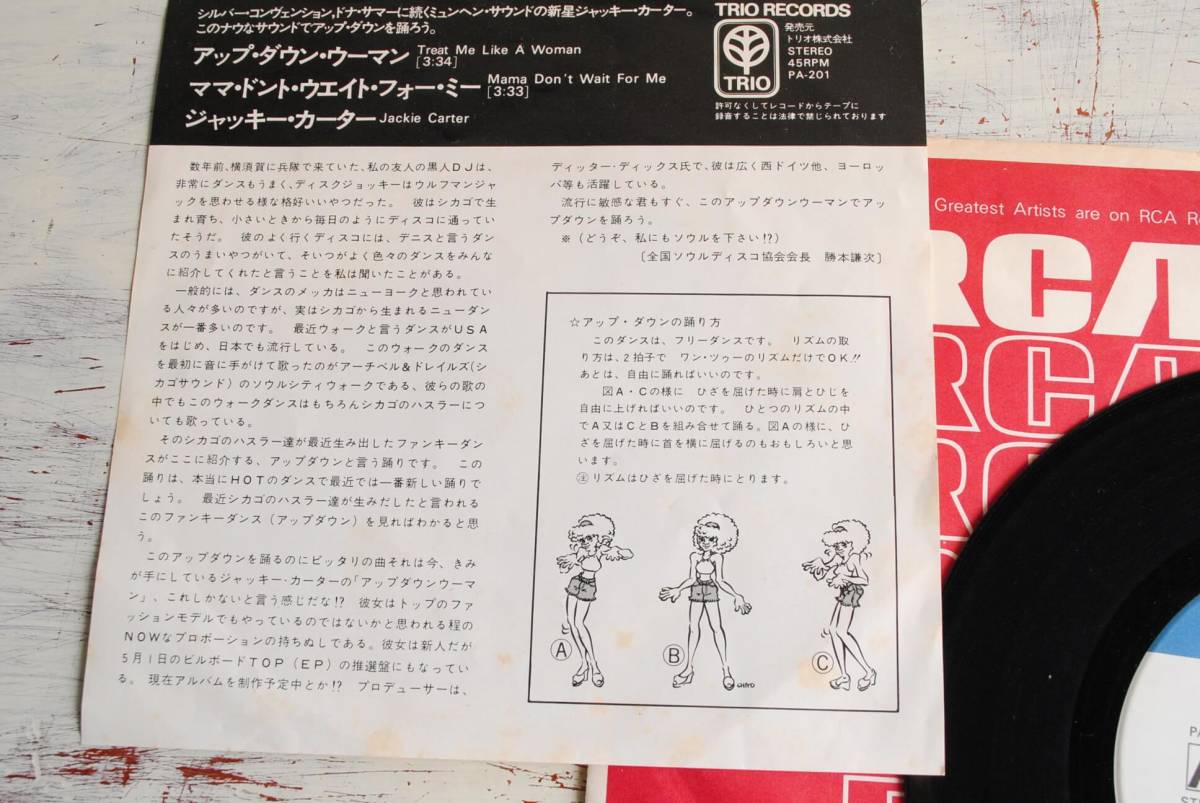 シルバー・コンヴェンション,ドナ・サマーに続くミュンヘン・サウンドの新星ジャッキー・カーター。
このナウなサウンドでアップ・ダウンを踊ろう。
アップ・ダウン・ウーマン Treat Me Like A Woman [3:34]
ママ・ドント・ウエイト・フォー・ミー Mama Don't Wait For Me [3:33]
ジャッキー・カーター Jackie Carter
TRIO RECORDS
TRIO
発売元
トリオ株式会社
STEREO
45RPM
PA-201
許可なくしてレコードからテープに
録音することは法律で禁じられております
数年前、横須賀に兵隊で来ていた、私の友人の黒人DJは、
非常にダンスもうまく、ディスクジョッキーはウルフマンジャ
ックを思わせる様な格好いいやつだった。 彼はシカゴで生
まれ育ち、小さいときから毎日のようにディスコに通ってい
たそうだ。 彼のよく行くディスコには、デニスと言うダン
スのうまいやつがいて、そいつがよく色々のダンスをみんな
に紹介してくれたと言うことを私は聞いたことがある。
一般的には、ダンスのメッカはニューヨークと思われてい
る人々が多いのですが、実はシカゴから生まれるニューダン
スが一番多いのです。 最近ウォークと言うダンスがUSA
をはじめ、日本でも流行している。 このウォークのダンス
を最初に音に手がけて歌ったのがアーチベル&ドレイルズ(シ
カゴサウンド)のソウルシティウォークである、彼らの歌の
中でもこのウォークダンスはもちろんシカゴのハスラーにつ
いても歌っている。
そのシカゴのハスラー達が最近生み出したファンキーダン
スがここに紹介する、アップダウンと言う踊りです。 この
踊りは、本当にHOTのダンスで最近では一番新しい踊りで
しょう。 最近シカゴのハスラー達が生みだしたと言われる
このファンキーダンス(アップダウン)を見ればわかると思
う。
このアップダウンを踊るのにピッタリの曲それは今、きみ
が手にしているジャッキー・カーターの「アップダウンウーマ
ン」、これしかないと言う感じだな!? 彼女はトップのファ
ッションモデルでもやっているのではないかと思われる程の
NOWなプロポーションの持ちぬしである。彼女は新人だが
5月1日のビルボードTOP(EP)の推選盤にもなってい
る。 現在アルバムを制作予定中とか!? プロデューサーは、
ディッター・ディックス氏で、彼は広く西ドイツ他、ヨーロッ
パ等も活躍している。
流行に敏感な君もすぐ、このアップダウンウーマンでアッ
プダウンを踊ろう。
※(どうぞ、私にもソウルを下さい!?)
[全国ソウルディスコ協会会長 勝本謙次]
☆アップ・ダウンの踊り方
このダンスは、フリーダンスです。 リズムの取
り方は、2拍子で ワン・ツゥーのリズムだけでOK!!
あとは、自由に踊ればいいのです。
図A・Cの様に ひざを屈げた時に肩とひじを
自由に上げればいいのです。 ひとつのリズムの中
でA又はCとBを組み合せて踊る。図Aの様に、ひ
ざを屈げた時に首を横に屈げるのもおもしろいと思
います。
注リズムはひざを屈げた時にとります。
A
B
C
CHIYO
Greatest Artists are on RCA Re
RCA
RCA
RC
PA
ST